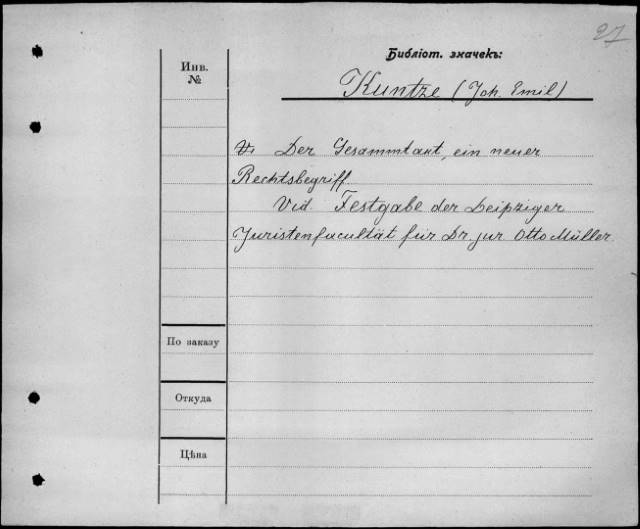 27
Библіот. значекъ:
Инв.
№
Kuntze (Joh. Emil)
Der Gesammtaut, ein neuer
Rechtsbegriff
Vid. Festgabe der Leipziger
Juristenfacultät für Dr. jur Otto Müller
По заказу
Откуда
Цѣна